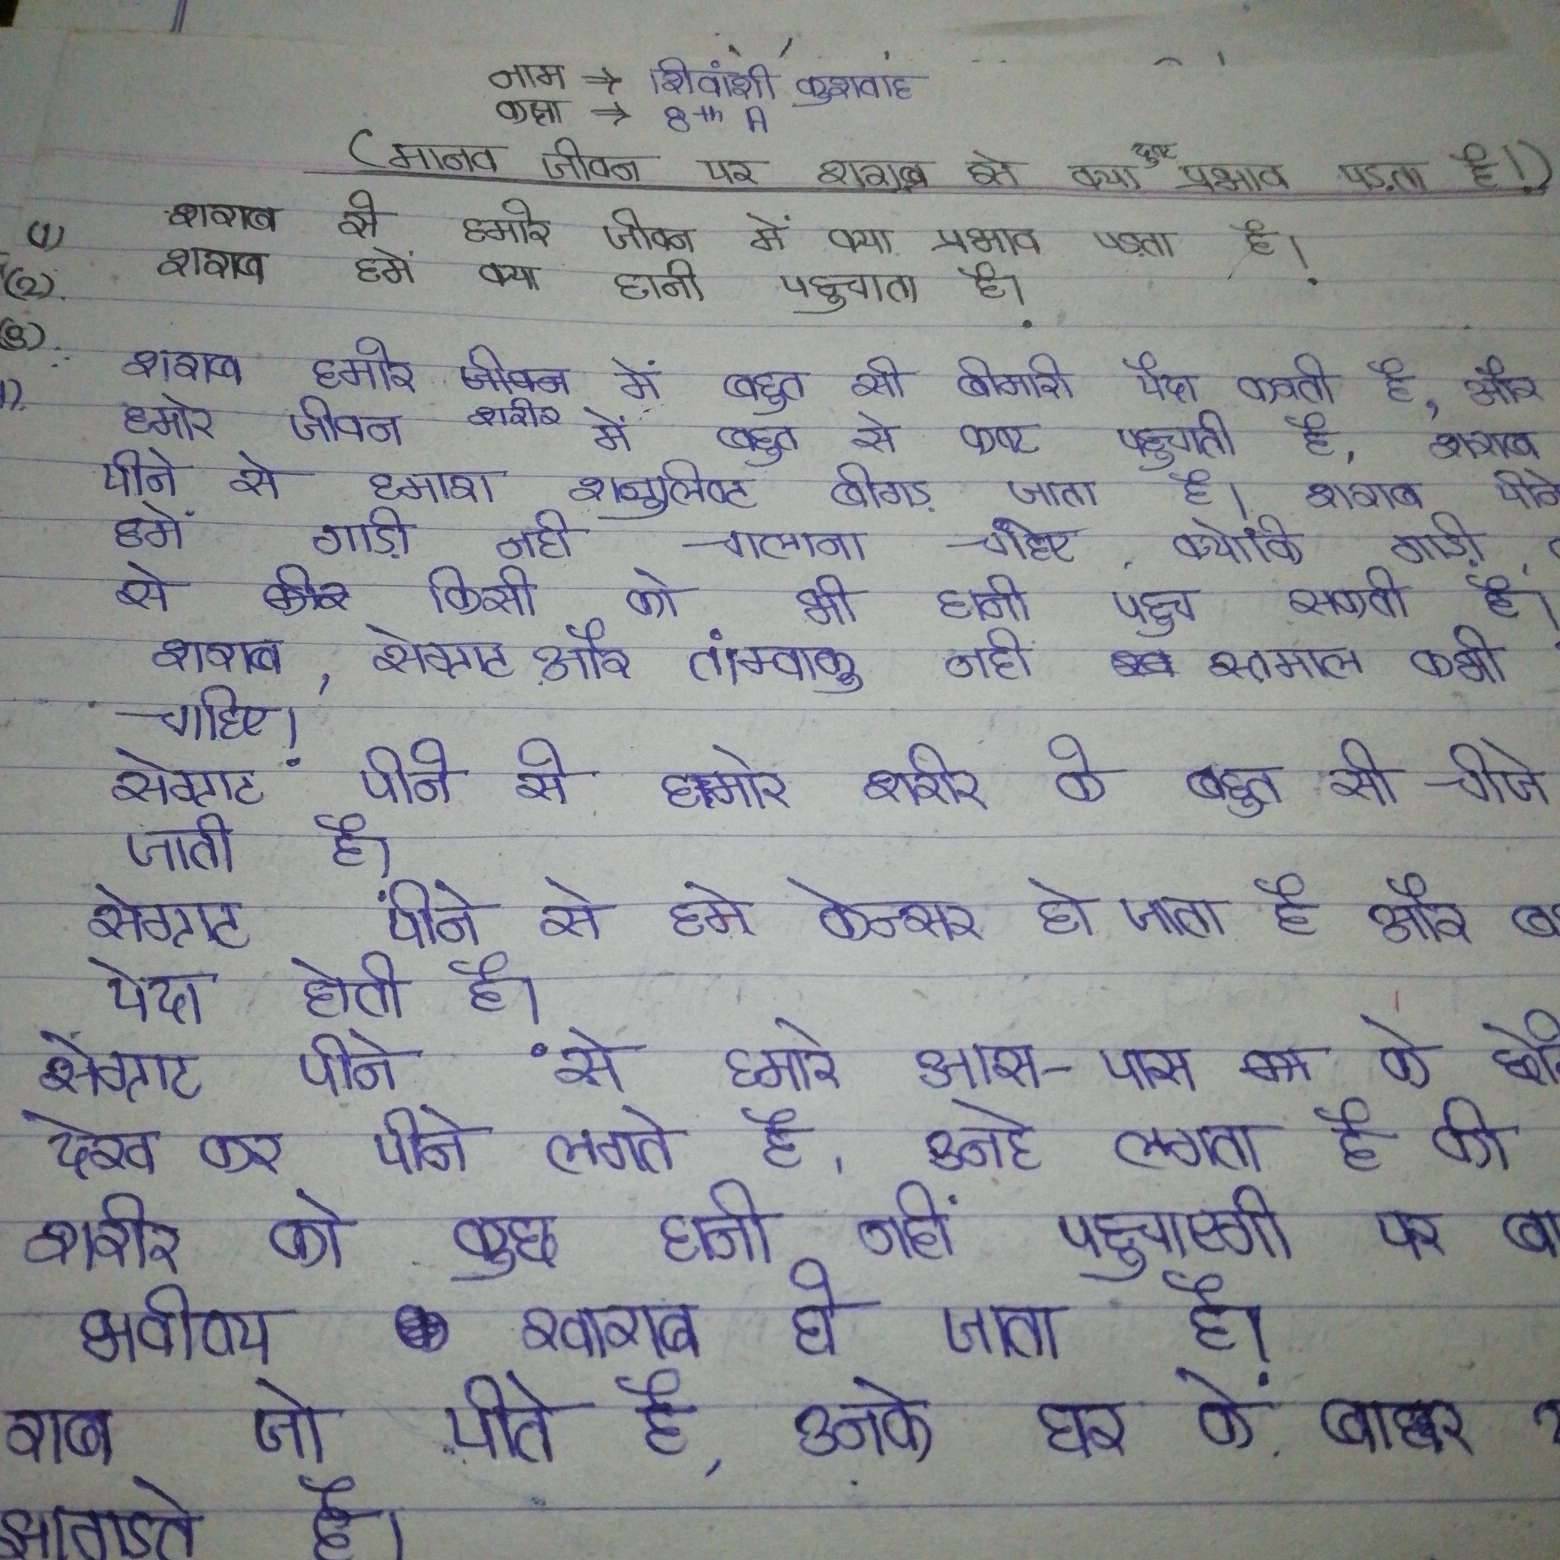 नाम → शिवांशी कुशवाह
कक्षा → 8th A
(मानव जीवन पर शराब से क्या दुष्प्रभाव पड़ता है।)
(1) शराब से हमारे जीवन में क्या प्रभाव पड़ता है।
(2). शराब हमें क्या हानी पहुचाता है।
(3).
1). शराब हमारे जीवन में बहुत सी बीमारी पैदा करती है, और
हमारे जीवन शरीर में बहुत से कष्ट पहुचाती है, शराब
पीने से हमारा बीगड़ जाता है। शराब पीने
हमें गाड़ी नही चालाना चाहिए, क्योंकि गाड़ी
से किसी को भी हानी पहुच सकती है।
शराब, सेक्राट और तांम्वाकु नहीं इस्तमाल कभी
चाहिए।
सेक्राट पीने से हामारे शरीर के बहुत सी चीजे
जाती है।
सेग्राट पीने से हमे केन्सर हो जाता है और
पेदा होती है।
सेग्राट पीने से हमारे आस-पास के
देख कर पीने लगते है, उनहे लगता है की
शरीर को कुछ हानी नहीं पहुचाएगी पर
भवीष्य खाराब हो जाता है।
राब जो पीते है, उनके घर के बाहर
है।